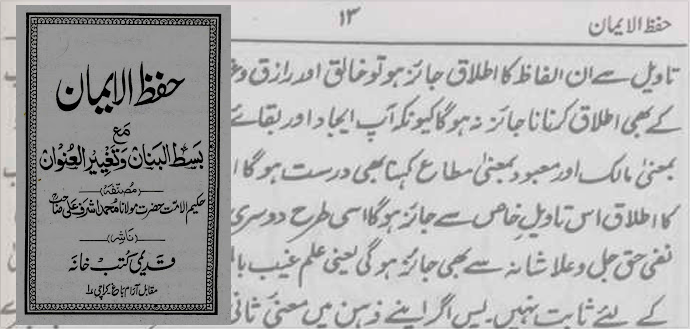 حفظ الایمان
مَع
بسط البنان و تغییر العنوان
مصنّفہ
حکیم الامت حضرت مولانا محمد اشرف علی صاحب
ناشر
قدیمی کتب خانہ
مقابل آرام باغ کراچی ۱
حفظ الایمان
۱۳
تاویل سے ان الفاظ کا اطلاق جائز ہو تو خالق اور رازق
کے بھی اطلاق کرنا ناجائز نہ ہوگا کیونکہ آپ ایجاد اور بقائے
بمعنیٰ مالک اور معبود بمعنیٰ مطاع کہنا بھی درست ہوگا
کا اطلاق اس تاویل خاص سے جائز ہوگا اسی طرح دوسری
نفی حق جل و علا شانہ سے بھی جائز ہوگی یعنی علم غیب
کے لئے ثابت نہیں۔ پس اگر اپنے ذہن میں معنیٰ ثانی